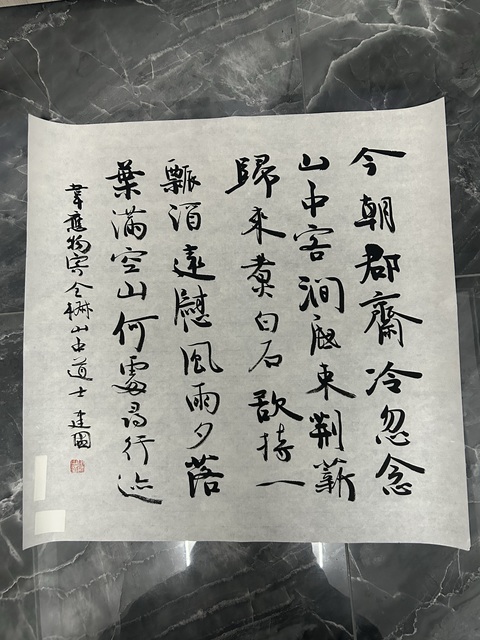 今朝郡齋冷忽念
山中客澗底束荆薪
歸來煮白石欲持一
瓢酒遠慰風雨夕落
葉滿空山何處尋行迹
韋應物寄全椒山中道士 建國